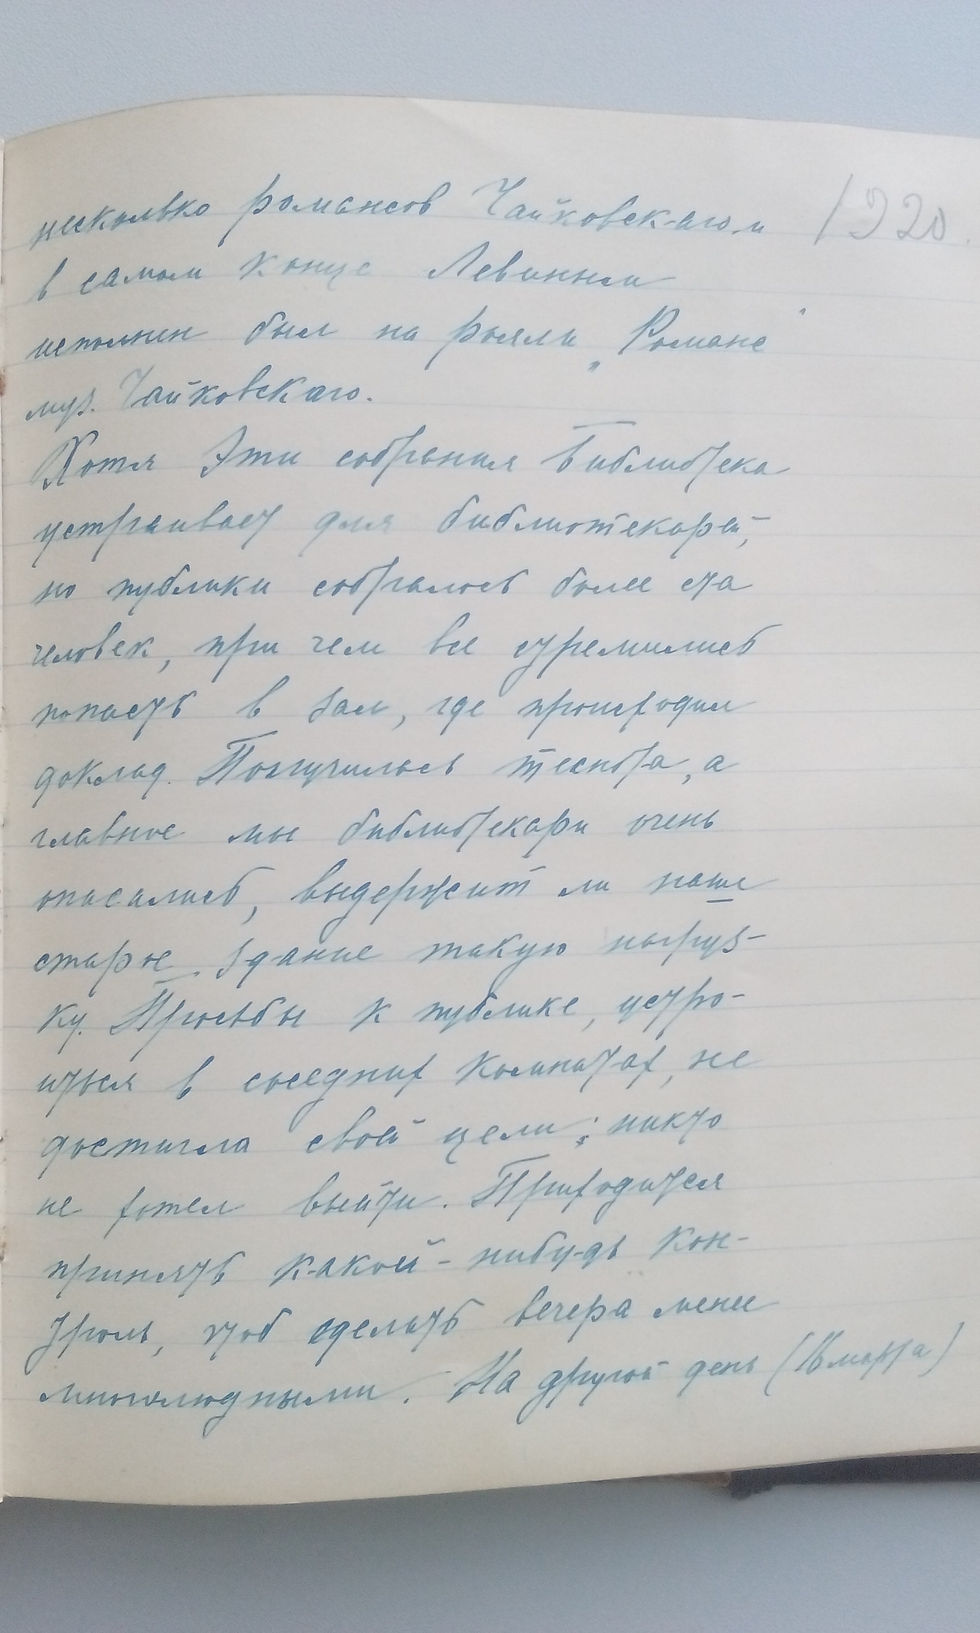 несколько романсов Чайковскаго и 1920.
в самом конце Левиным
исполнен был на рояли „Романс"
муз. Чайковскаго.
Хотя эти собрания Библиотека
устраивает для библиотекарей,
но публики собралось более ста
человек, при чем все стремились
попасть в зал, где происходил
доклад. Получилась теснота, а
главное мы библиотекари очень
опасались, выдержит ли наше
старое здание такую нагруз-
ку. Просьбы к публике, устро-
иться в соседних комнатах, не
достигла своей цели; никто
не хотел выйти. Приходится
принять какой-нибудь кон-
троль, чтоб сделать вечера менее
многолюдными. На другой день (16 марта)